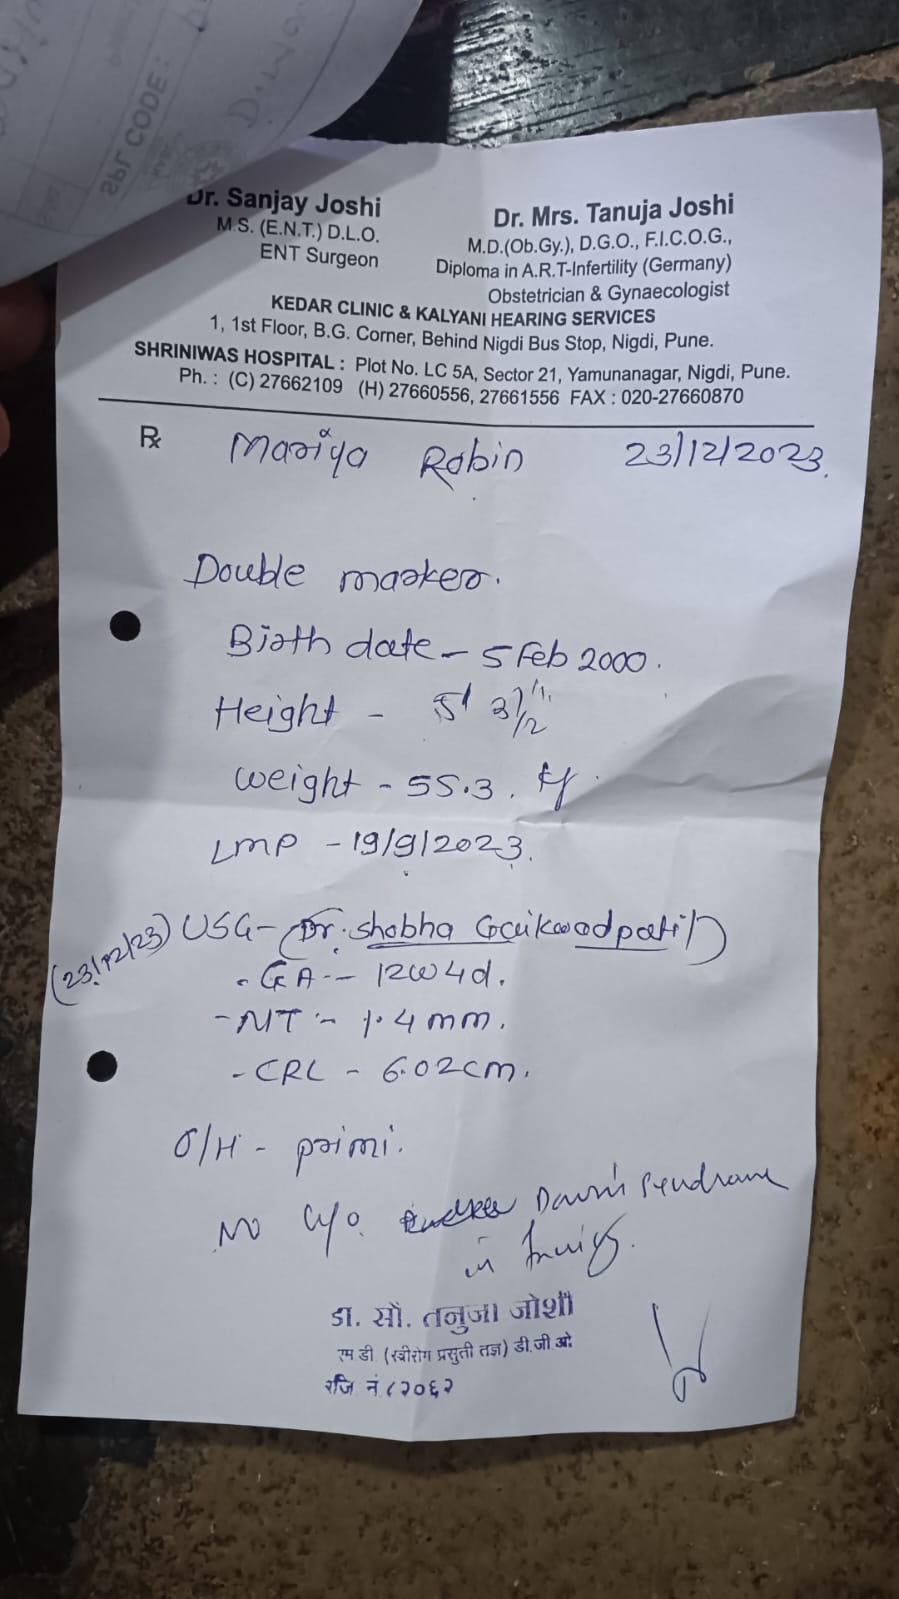 SPL CODE:
Dr. Sanjay Joshi
M.S. (E.N.T.) D.L.O.
ENT Surgeon
Dr. Mrs. Tanuja Joshi
M.D.(Ob.Gy.), D.G.O., F.I.C.O.G.,
Diploma in A.R.T-Infertility (Germany)
Obstetrician & Gynaecologist
KEDAR CLINIC & KALYANI HEARING SERVICES
1, 1st Floor, B.G. Corner, Behind Nigdi Bus Stop, Nigdi, Pune.
SHRINIWAS HOSPITAL : Plot No. LC 5A, Sector 21, Yamunanagar, Nigdi, Pune.
Ph. : (C) 27662109 (H) 27660556, 27661556 FAX : 020-27660870
℞ Mariya Robin 23/12/2023.
Double marker.
Birth date - 5 Feb 2000.
Height - 5' 3 1/2"
weight - 55.3. kg.
LMP - 19/9/2023.
(23/12/23) USG - (Dr. Shobha Gaikwadpatil)
- GA - 12w4d.
- NT - 1.4mm.
- CRL - 6.02cm.
O/H - primi.
No Down's Syndrome
in family.
डा. सौ. तनुजा जोशी
एम डी. (स्त्रीरोग प्रसुती तज्ञ) डी.जी ओ.
रजि नं. ८२०६२